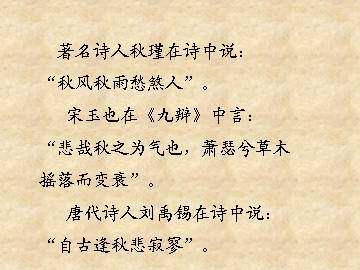 著名诗人秋瑾在诗中说：
“秋风秋雨愁煞人”。
宋玉也在《九辩》中言：
“悲哉秋之为气也，萧瑟兮草木
摇落而变衰”。
唐代诗人刘禹锡在诗中说：
“自古逢秋悲寂寥”。